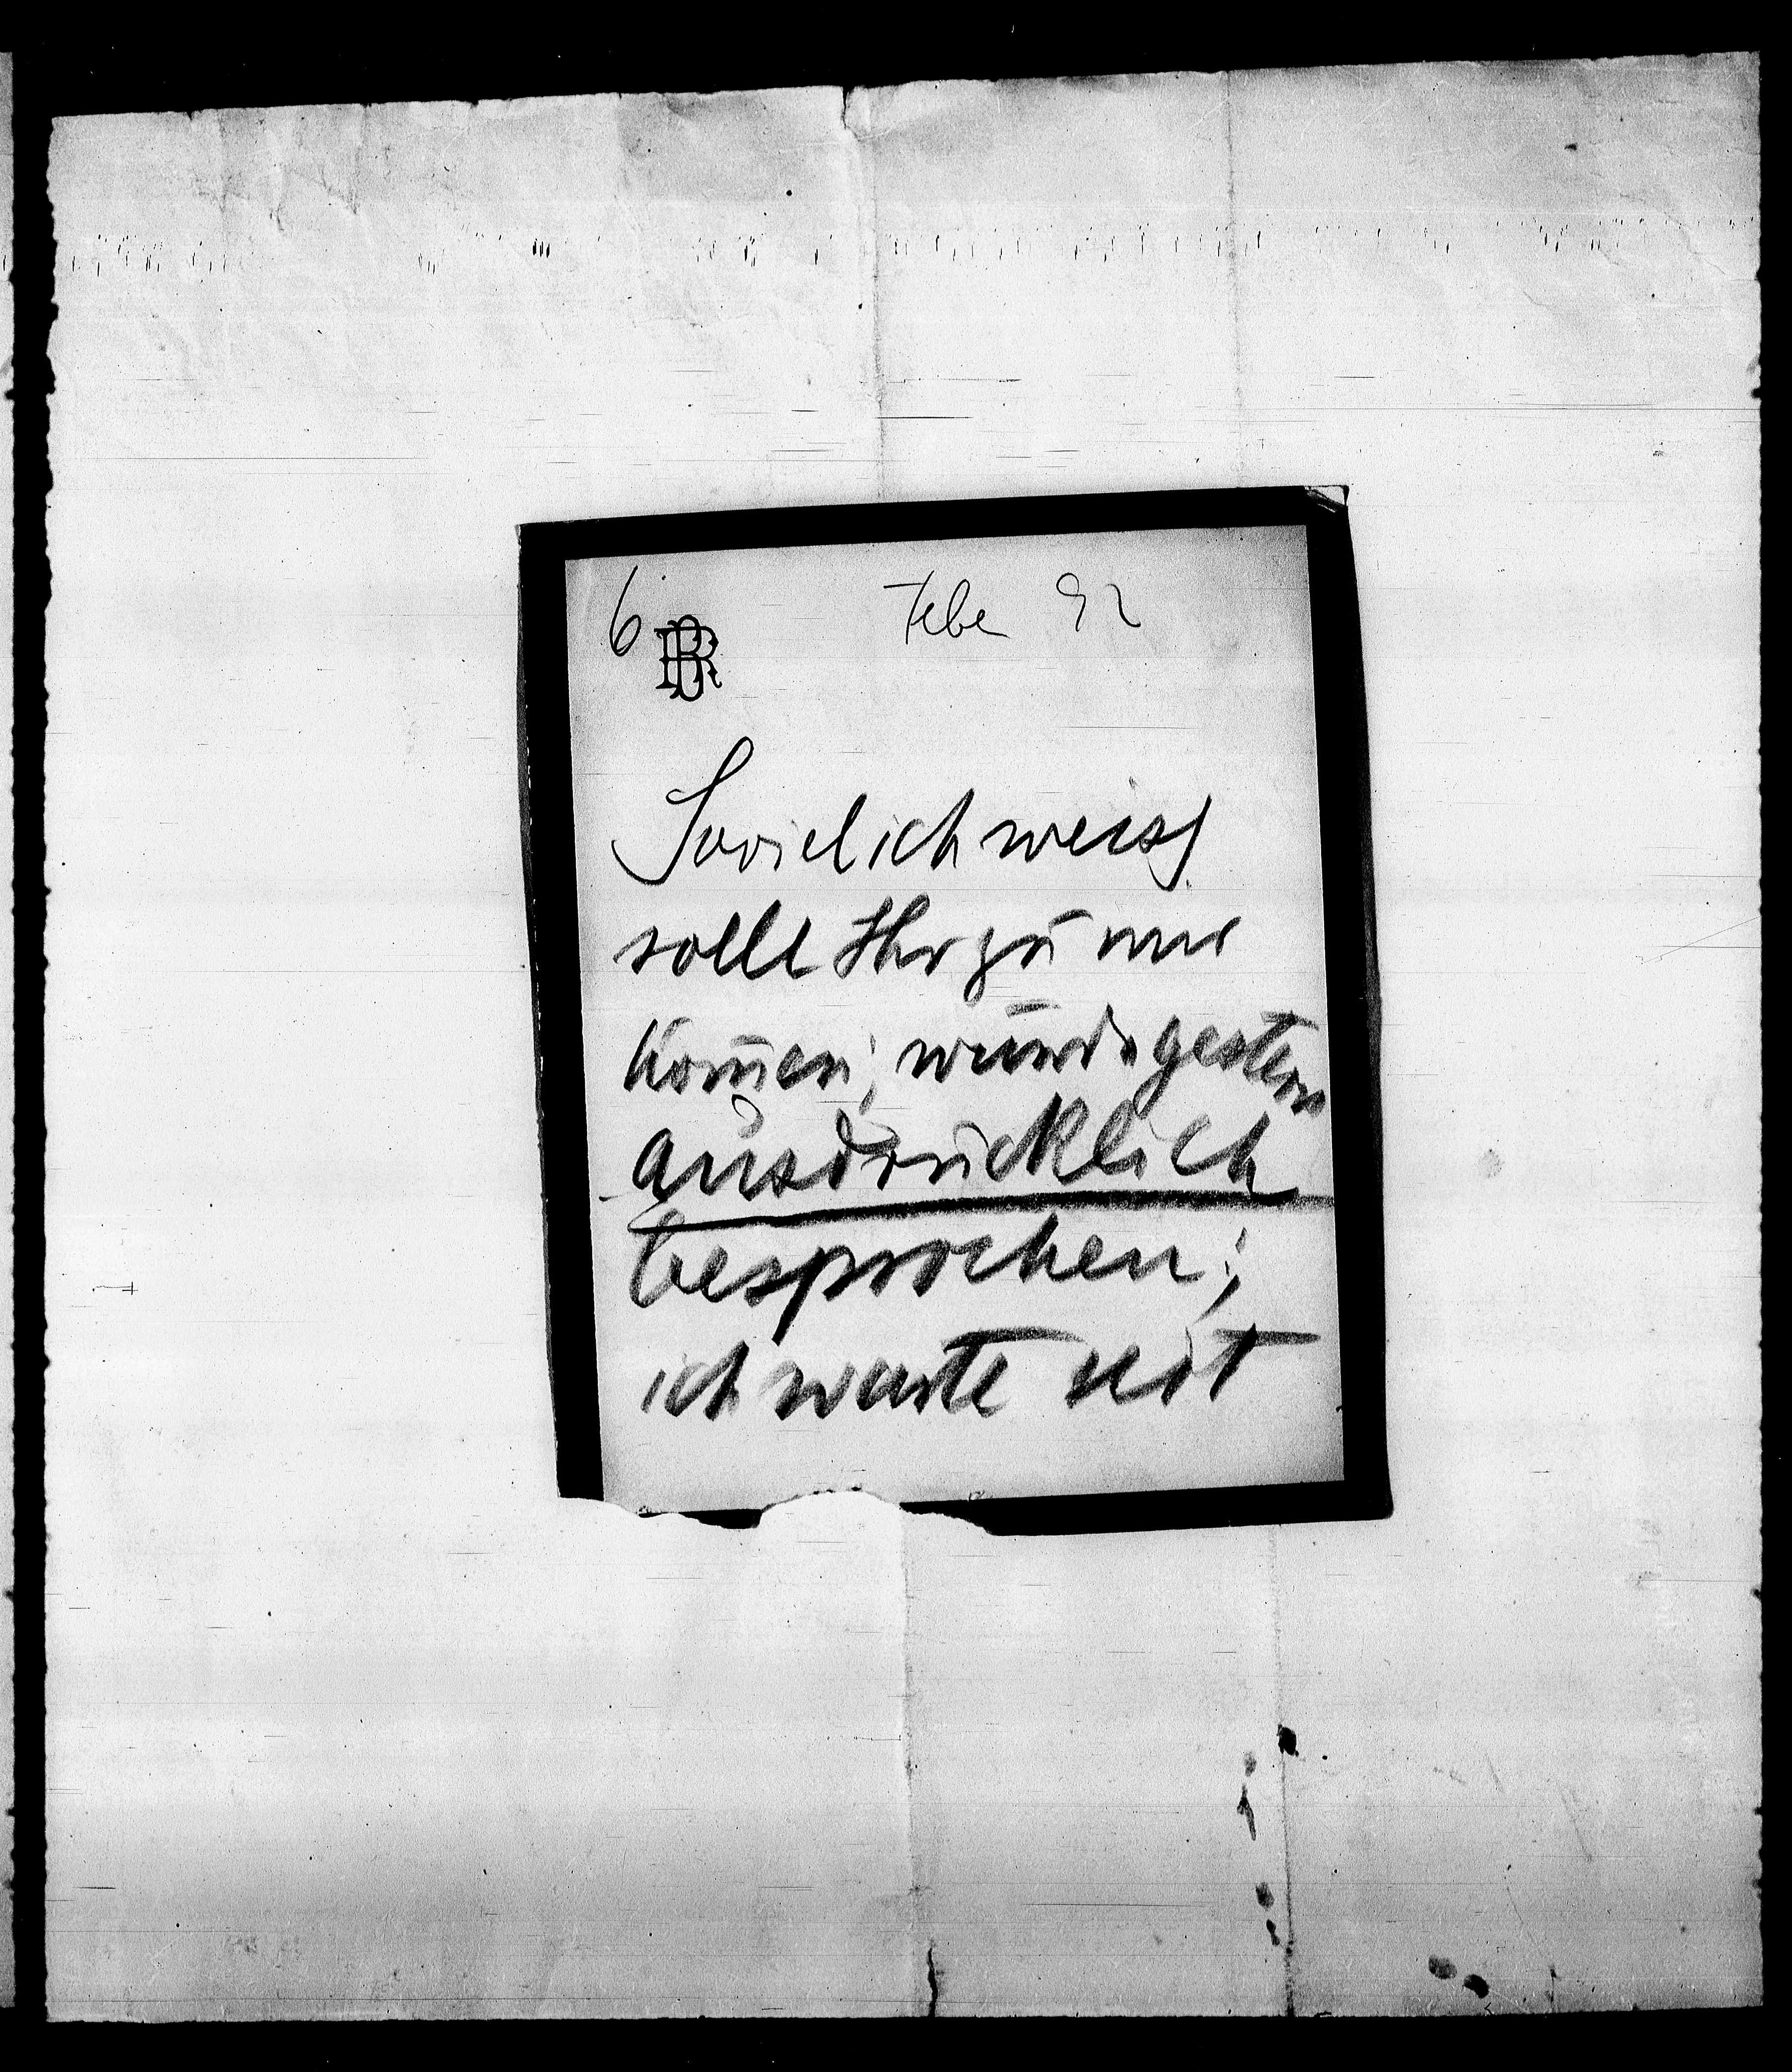 6. Febr 92
BR
Soviel ich weiss
sollt Ihr zu mir
kom̄en; wurde gestern
ausdrücklich
besprochen;
ich warte seit